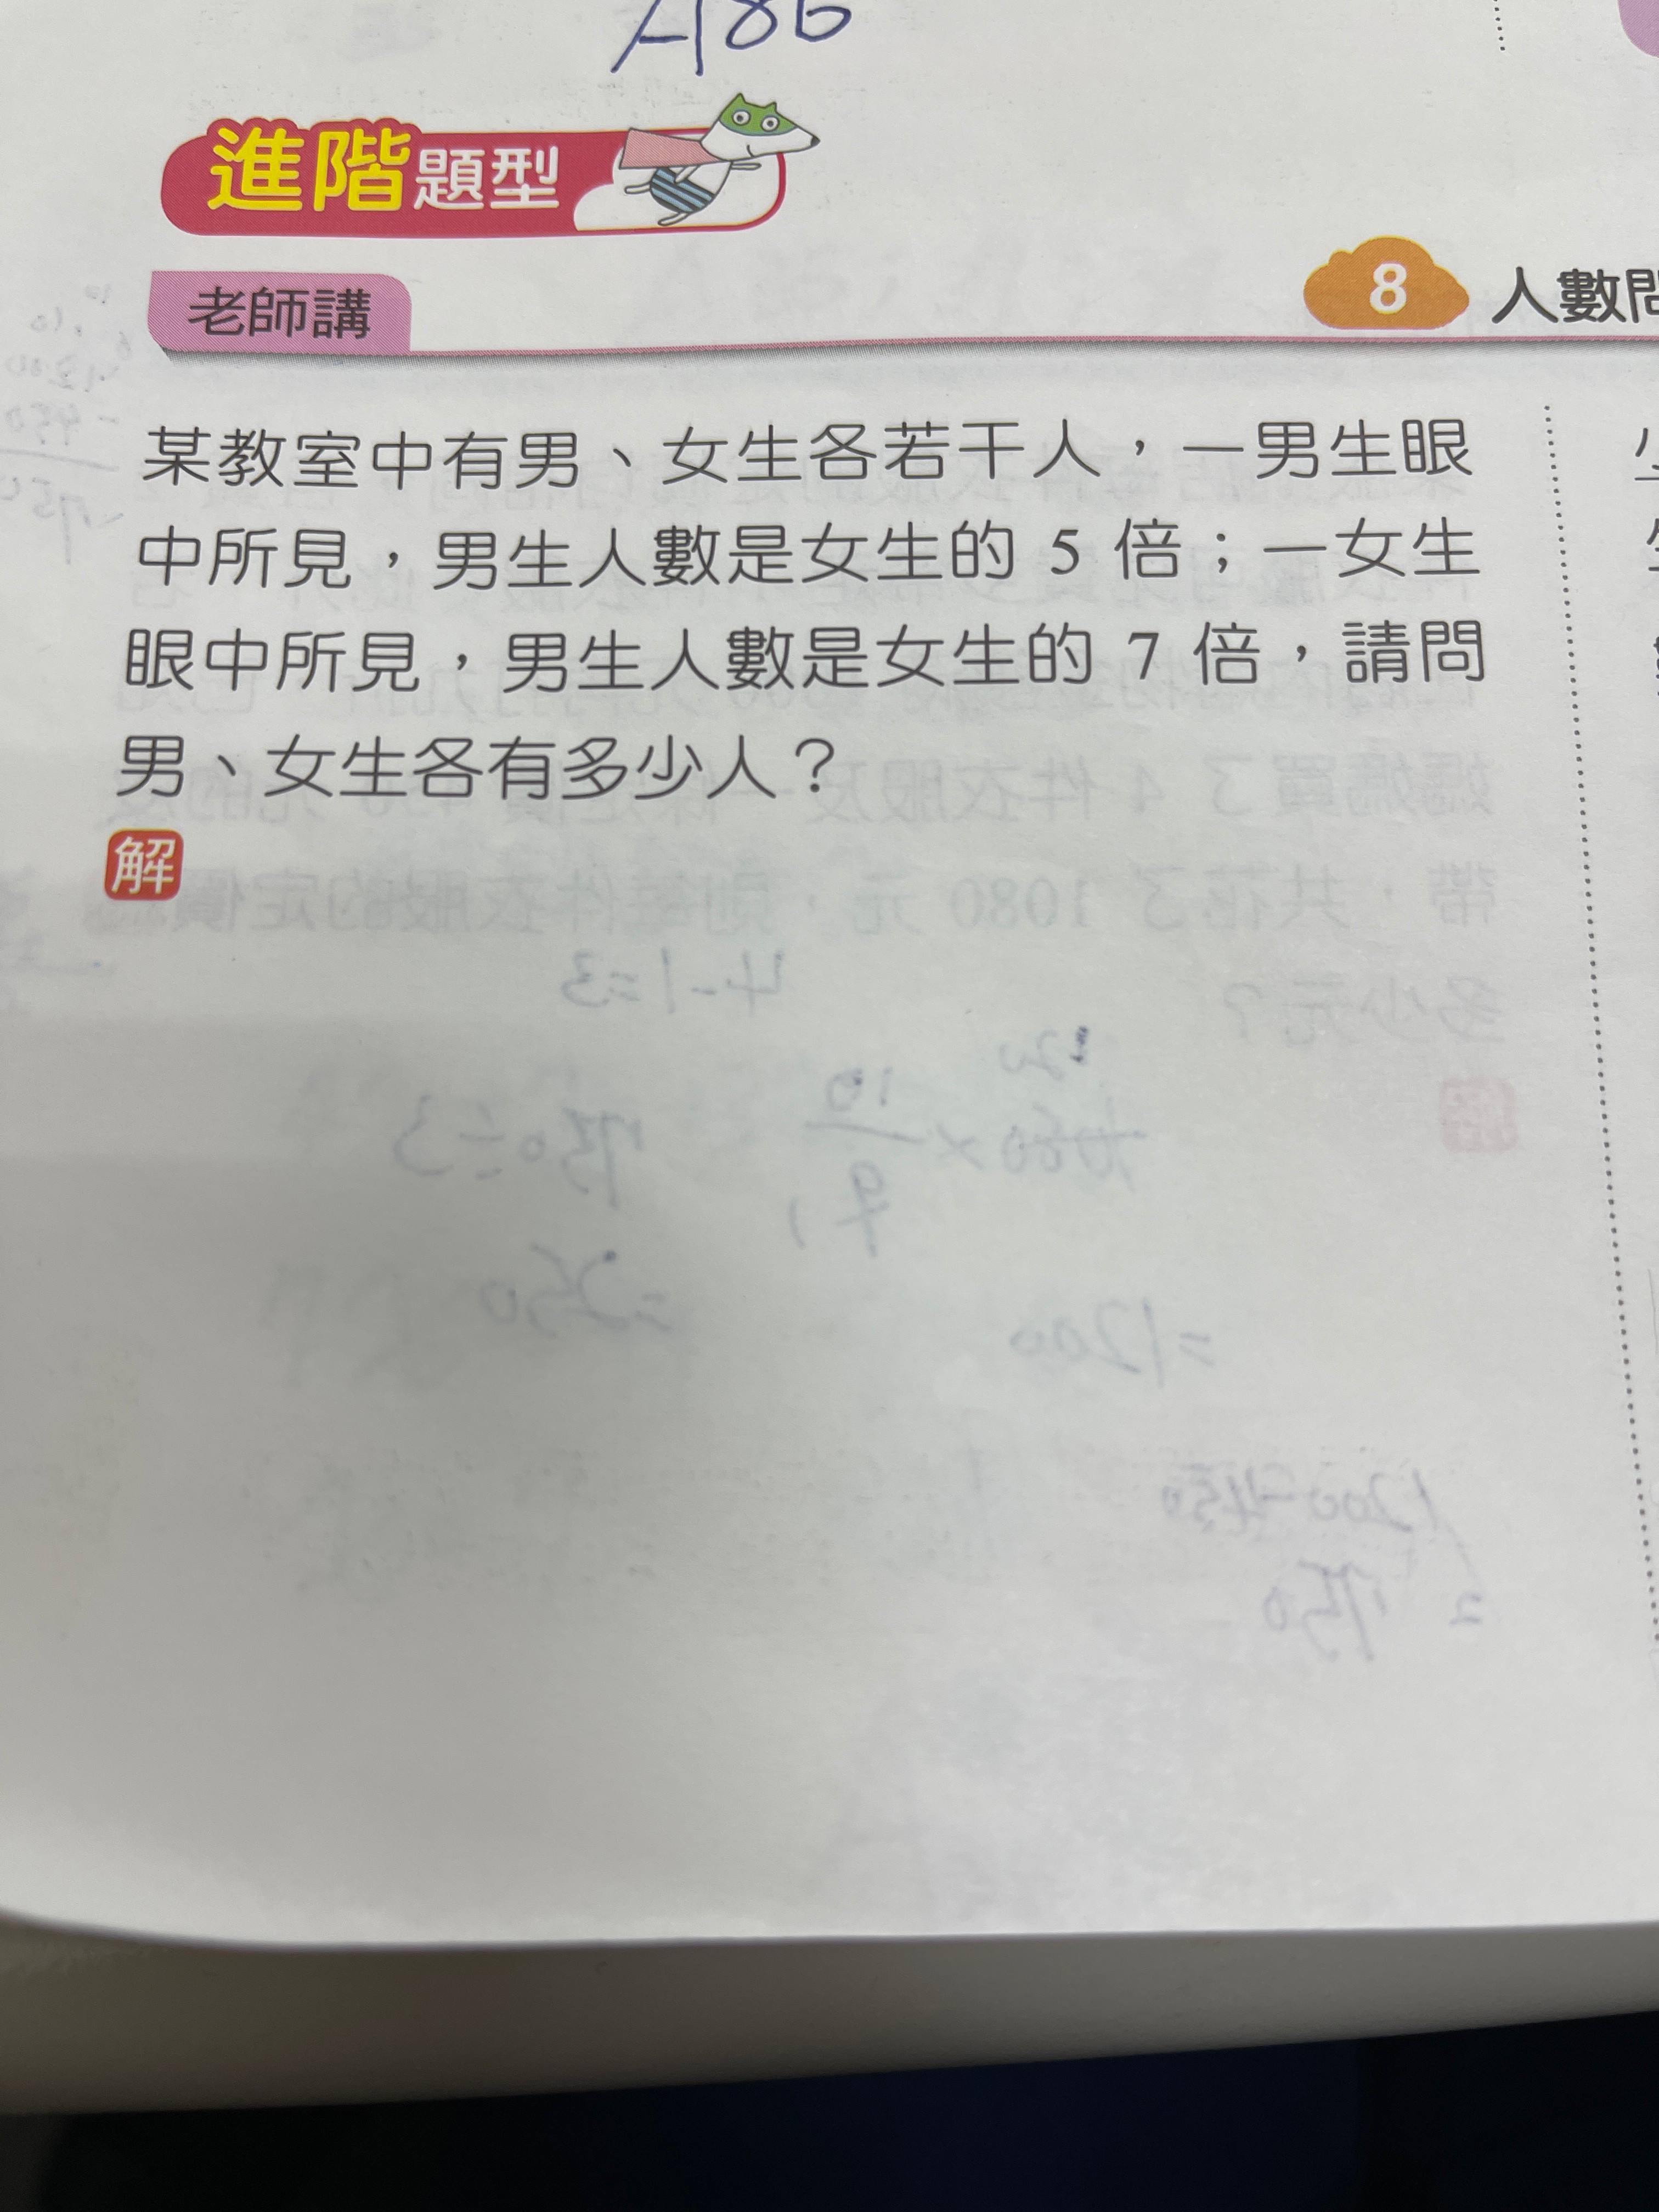 A186
進階題型
老師講
8 人數問
某教室中有男、女生各若干人，一男生眼
中所見，男生人數是女生的 5 倍；一女生
眼中所見，男生人數是女生的 7 倍，請問
男、女生各有多少人？
解